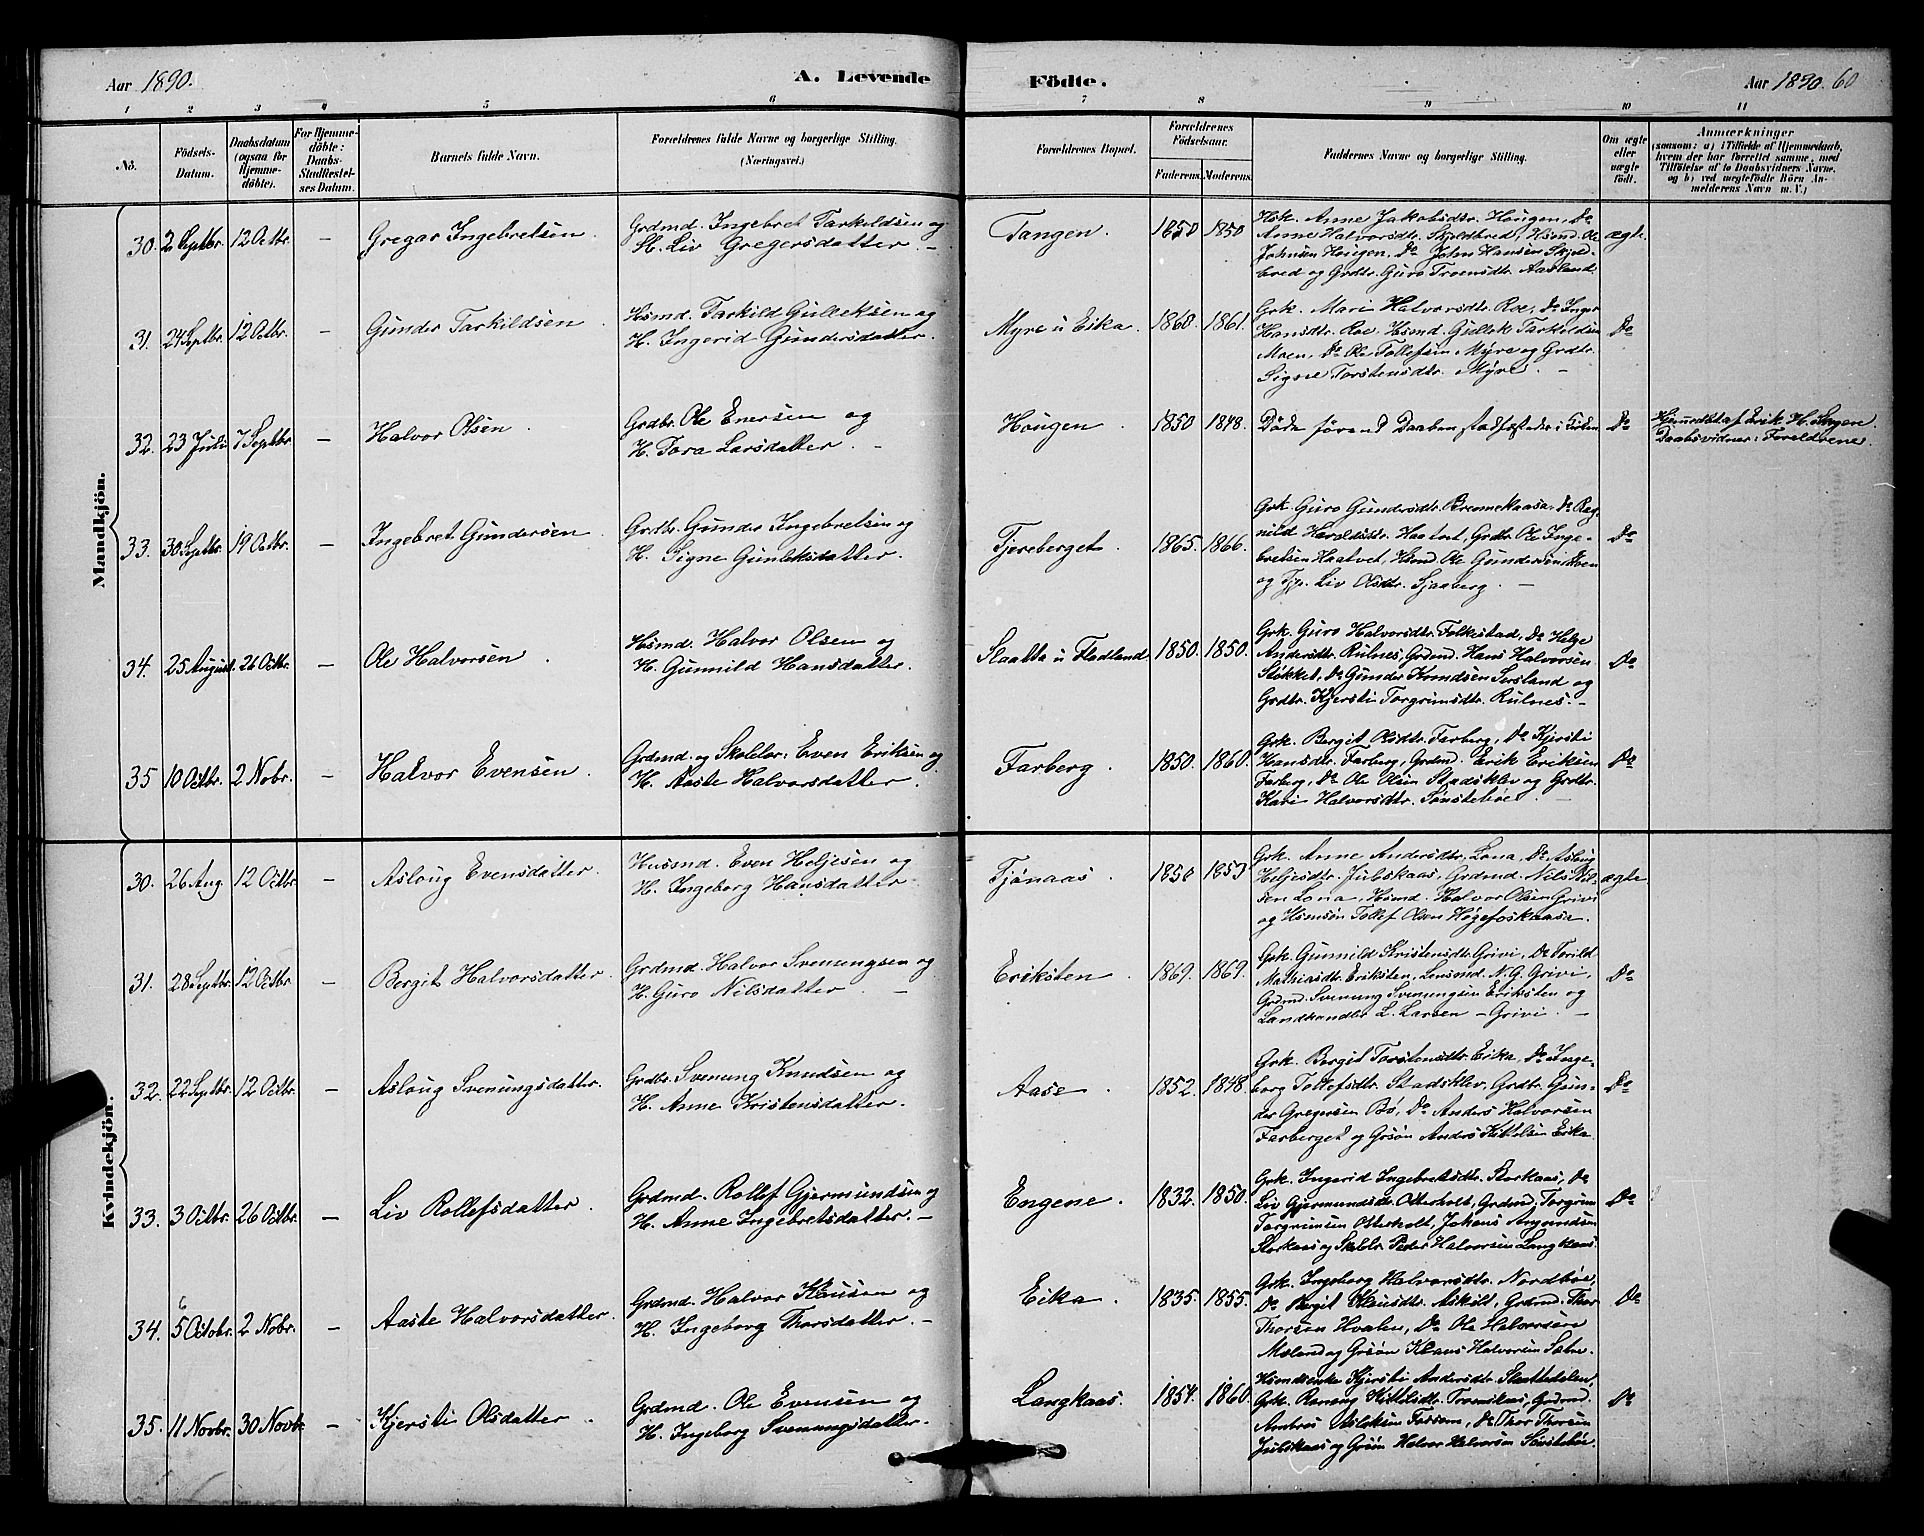 Aar 1890.
A. Levende
Födte.
Aar 1890. 60
1 2 3 4 5 6 7 8 9 10 11
No.
Födsels-Datum.
Daabsdatum (ogsaa for Hjemmedöbte).
For Hjemmedöbte: Daabs-Stadfæstelses Datum.
Barnets fulde Navn.
Forældrenes fulde Navne og borgerlige Stilling. (Næringsvei.)
Forældrenes Bopæl.
Forældrenes Födselsaar.
Faderens. Moderens.
Faddernes Navne og borgerlige Stilling.
Om ægte eller uægte födt.
Anmærkninger
(saasom: a) i Tilfælde af Hjemmedaab, hvem der har forrettet samme, med Tilföielse af to Daabsvidners Navne, og b) ved uægtefödte Börn Anmelderens Navn m. V.)
Mandkjön.
30. 2 Septbr. 12 Octbr. – Gregar Ingebretsen.
Grdmd. Ingebret Tarkildsen og
H. Liv Gregersdatter. –
Tangen. 1850 1850
Hsk. Anne Jakobsdtr. Hougen, Do
Anne Halvorsdtr. Skjeldbred, Hsmd. Ole
Johnsen Hougen, Do John Hansen Skjeld-
bred og Grdtr. Guro Troensdtr. Aasland.
ægte
31. 24 Septbr. 12 Octbr. – Gunder Tarkildsen
Hsmd. Tarkild Gulleksen og
H. Ingerid Gundersdatter.
Myre u Eika. 1860. 1861.
Grk. Mari Halvorsdtr. Roe, Do Inger
Hansdtr. Roe, Hsmd. Gjellek Tarkildsen
Moen, Do Ole Tollefsen Myre og Grdtr.
Signe Torstensdtr. Myre. –
Do
32. 23 Juli 7 Septbr – Halvor Olsen.
Grdbr. Ole Evensen og
H. Tora Larsdatter. –
Hougen. 1850 1848.
Døde førend Daaben stadfæstedes i Kirken
Do
Hjemmedøbt af Erik H. Haugen.
Daabsvidner: Forældrene.
33. 30 Septbr. 19 Octbr. – Ingebret Gundersen
Grdbr. Gunder Ingebretsen og
H. Signe Gunleksdatter.
Tjereberget. 1865. 1866.
Grk. Guro Gundersdtr. Brennekaasa, Do Rag-
nild Haroldsdtr. Haatvet, Grdbr. Ole Inge-
bretsen Haatvet, Hsmd. Ole Gundersen
og Tjp. Liv Olsdtr. Sjaaberg. –
Do
34. 25 August. 26 Octbr. – Ole Halvorsen.
Hsmd. Halvor Olsen og
H. Gunnild Hansdatter.
Slaatta u Fladland 1850. 1850.
Grk. Guro Halvorsdtr. Folkestad, Do Helge
Andersdtr. Rulnes, Grdmd. Hans Halvorsen
Støkket, Do Gunder Knudsen Sersland og
Grdtr. Kjersti Torgrimsdtr. Rulnes. –
Do
35 10 Octbr. 2 Nobr. – Halvor Evensen.
Grdmd. og Skolelær: Even Eriksen og
H. Aaste Halvorsdatter.
Farberg. 1850. 1860.
Grk. Bergit Olsdtr. Farberg, Do Kjersti
Hansdtr. Farberg, Grdmd. Erik Eriksen
Farberg, Do Ole Olsen Stadsklev og Grdtr.
Kari Halvorsdtr. Sønstebøe. –
Do
Kvindekjön.
30. 26 Aug. 12 Octbr. – Asloug Evensdatter.
Husmd. Even Heljesen og
H. Ingeborg Hansdatter.
Tjønaas. 1850 1853
Grk. Anne Andersdtr. Lona, Do Asloug
Heljesdtr. Julskaas, Grdmd. Nils
sen Lona, Hsmd. Halvor Olsen Grivi
og Hsmsøn Tollef Olsen Høgefoskaasa.
ægte
31. 28 Septbr. 12 Octbr – Bergit Halvorsdatter.
Grdmd. Halvor Svenungsen og
H. Guro Nilsdatter. –
Eriksten. 1869. 1869.
Grk. Gunnild Kristensdtr. Grivi, Do Torild
Mathiasdtr. Eriksten, Lensmd. N. G. Grivi,
Grdmd. Svenung Svenungsen Eriksten og
Landhandler L. Larsen – Grivi. –
Do
32. 22 Septbr. 12 Octbr. – Asloug Svenungsdatter.
Grdbr. Svenung Knudsen og
H. Anne Kristensdatter.
Aase 1852. 1848.
Grk. Bergit Torstensdtr. Eika, Do Inge-
borg Tollefsdtr. Stadsklev, Grdbr. Gun-
der Gregersen Bø, Do Anders Halvorsen
Farberget og Grsøn Anders Kittelsen Eika.
Do
33. 3 Octbr. 26 Octbr. – Liv Rollefsdatter.
Grdmd. Rollef Gjermundsen og
H. Anne Ingebretsdatter. –
Engene. 1832. 1850.
Grk. Ingerid Ingebretsdtr. Storkaas, Do
Liv Gjermundsdtr. Otterholt, Grdmd. Torgrim
Torgrimsen Otterholt, Johans Amundsen
Storkaas og Skolelr. Peder Halvorsen Langkaas.
Do
34. 6 5 Octobr. 2 Nobr. – Aaste Halvorsdatter.
Grdmd. Halvor Klausen og
H. Ingeborg Thorsdatter. –
Eika. 1835. 1855.
Grk. Ingeborg Halvorsdtr. Nordbøe,
Do Bergit Klausdtr. Askilt, Grdmd. Thor
Thorsen Hvalen, Do Ole Halversen
Meland og Grsøn Klaus Halvorsen Sætre.
Do
35. 11 Novbr. 30 Novbr. – Kjersti Olsdatter.
Grdmd. Ole Evensen og
H. Ingeborg Svenungsdatter.
Langkaas. 1854. 1860.
Hsmdsenke Kjersti Andersdtr. Slettedalen,
Grk. Ranoug Kittilsdtr. Tronikaas, Grdmd.
Ambros Asleksen Fossem, Do Thor Thorsen
Julskaas og Grsøn Halvor Halvorsen Sønstebøe.
Do